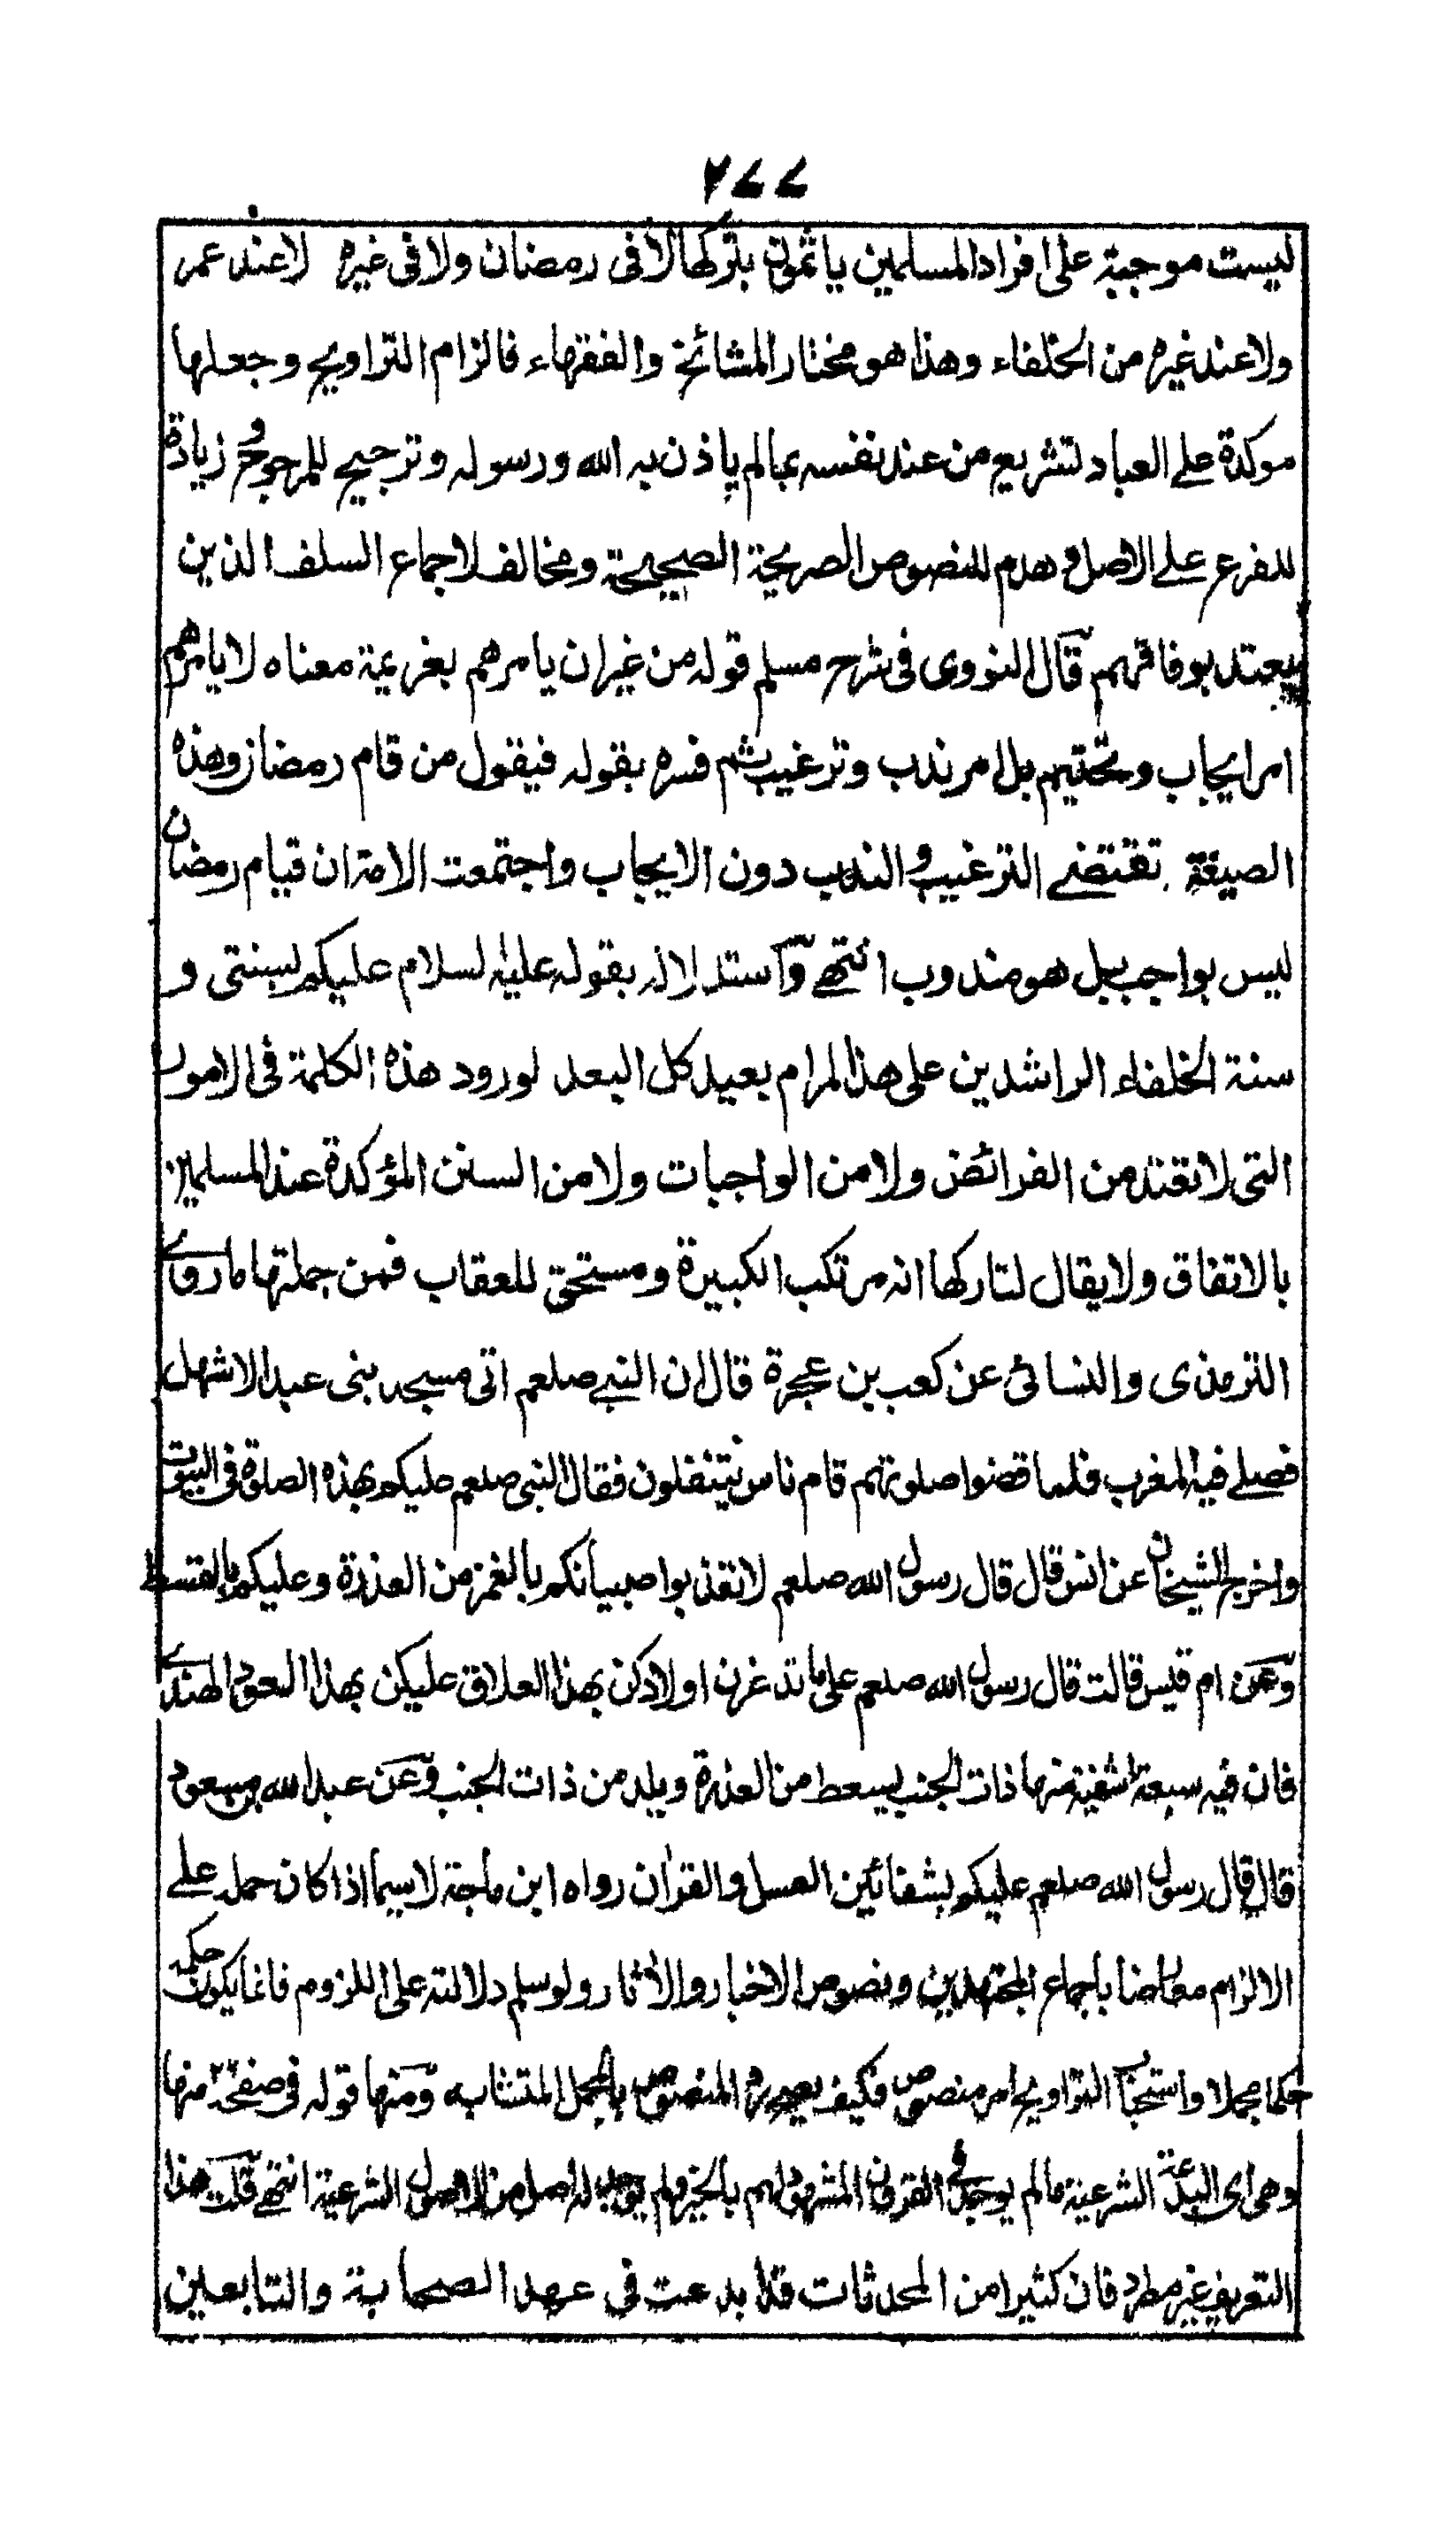 ٢٧٧
ليست موجبة على افراد المسلمين ياثمون بتركها لا فى رمضان ولا فى غيره لا عند عمر
ولا عند غيره من الخلفاء وهذا هو مختار المشائخ والفقهاء فالزام التراويح وجعلها
موكدة على العباد لتشريع من عند نفسه بما لم ياذن به الله ورسوله وترجيح للمرجوح و زيادة
للفرع على الاصل و هدم للنصوص الصريحة الصحيحة ومخالف لاجماع السلف الذين
يعتد بوفاقهم قال النووى فى شرح مسلم قوله من غير ان يامرهم بعزيمة معناه لا يامرهم
امر ايجاب وتحتيم بل امر ندب وترغيب ثم فسره بقوله فيقول من قام رمضان وهذه
الصيغة تقتضے الترغيب و الندب دون الايجاب واجتمعت الامة ان قيام رمضان
ليس بواجب بل هو مندوب انتهے و استدلاله بقوله عليه السلام عليكم بسنتى و
سنة الخلفاء الراشدين على هذا المرام بعيد كل البعد لورود هذه الكلمة فى الامور
التى لا تعد من الفرائض ولا من الواجبات ولا من السنن المؤكدة عند المسلمين
بالاتفاق ولا يقال لتاركها انه مرتكب الكبيرة ومستحق للعقاب فمن جملتها ما رواے
الترمذى والنسائى عن كعب بن عجرة قال ان النبے صلعم اتى مسجد بنى عبد الاشهل
فصلے فيه المغرب فلما قضوا صلوتهم قام ناس يتنفلون فقال النبى صلعم عليكم بهذه الصلوة فى البيوت
واخرج الشيخان عن انس قال قال رسول الله صلعم لا تعذبوا صبيانكم بالغمز من العذرة وعليكم بالقسط
وعن ام قيس قالت قال رسول الله صلعم على ما تدغرن اولادكن بهذا العلاق عليكن بهذا العود الهندے
فان فيه سبعة اشفية منها ذات الجنب يسعط من العذرة ويلد من ذات الجنب وعن عبد الله بن مسعود
قال قال رسول الله صلعم عليكم بشفائين العسل والقرآن رواه ابن ماجة لا سيما اذا كان حمله علے
الالزام معارضا باجماع المجتهدين ونصوص الاخبار والآثار ولو سلم دلالته على اللزوم فانما يكون حكمه
حكما مجملا واستحباب التراويح امر منصوص فكيف يعود المنصوص بالمجمل المتشابه ومنها قوله فى صفحة ٢٢ منها
وهى اى البدعة الشرعية ما لم يوجد فى القرون المشهود لهم بالخير ولم يوجد له اصل من الاصول الشرعية انتهے قلت هذا
التعريف غير مطرد فان كثيرا من المحدثات قد ابدعت فى عهد الصحابة والتابعين